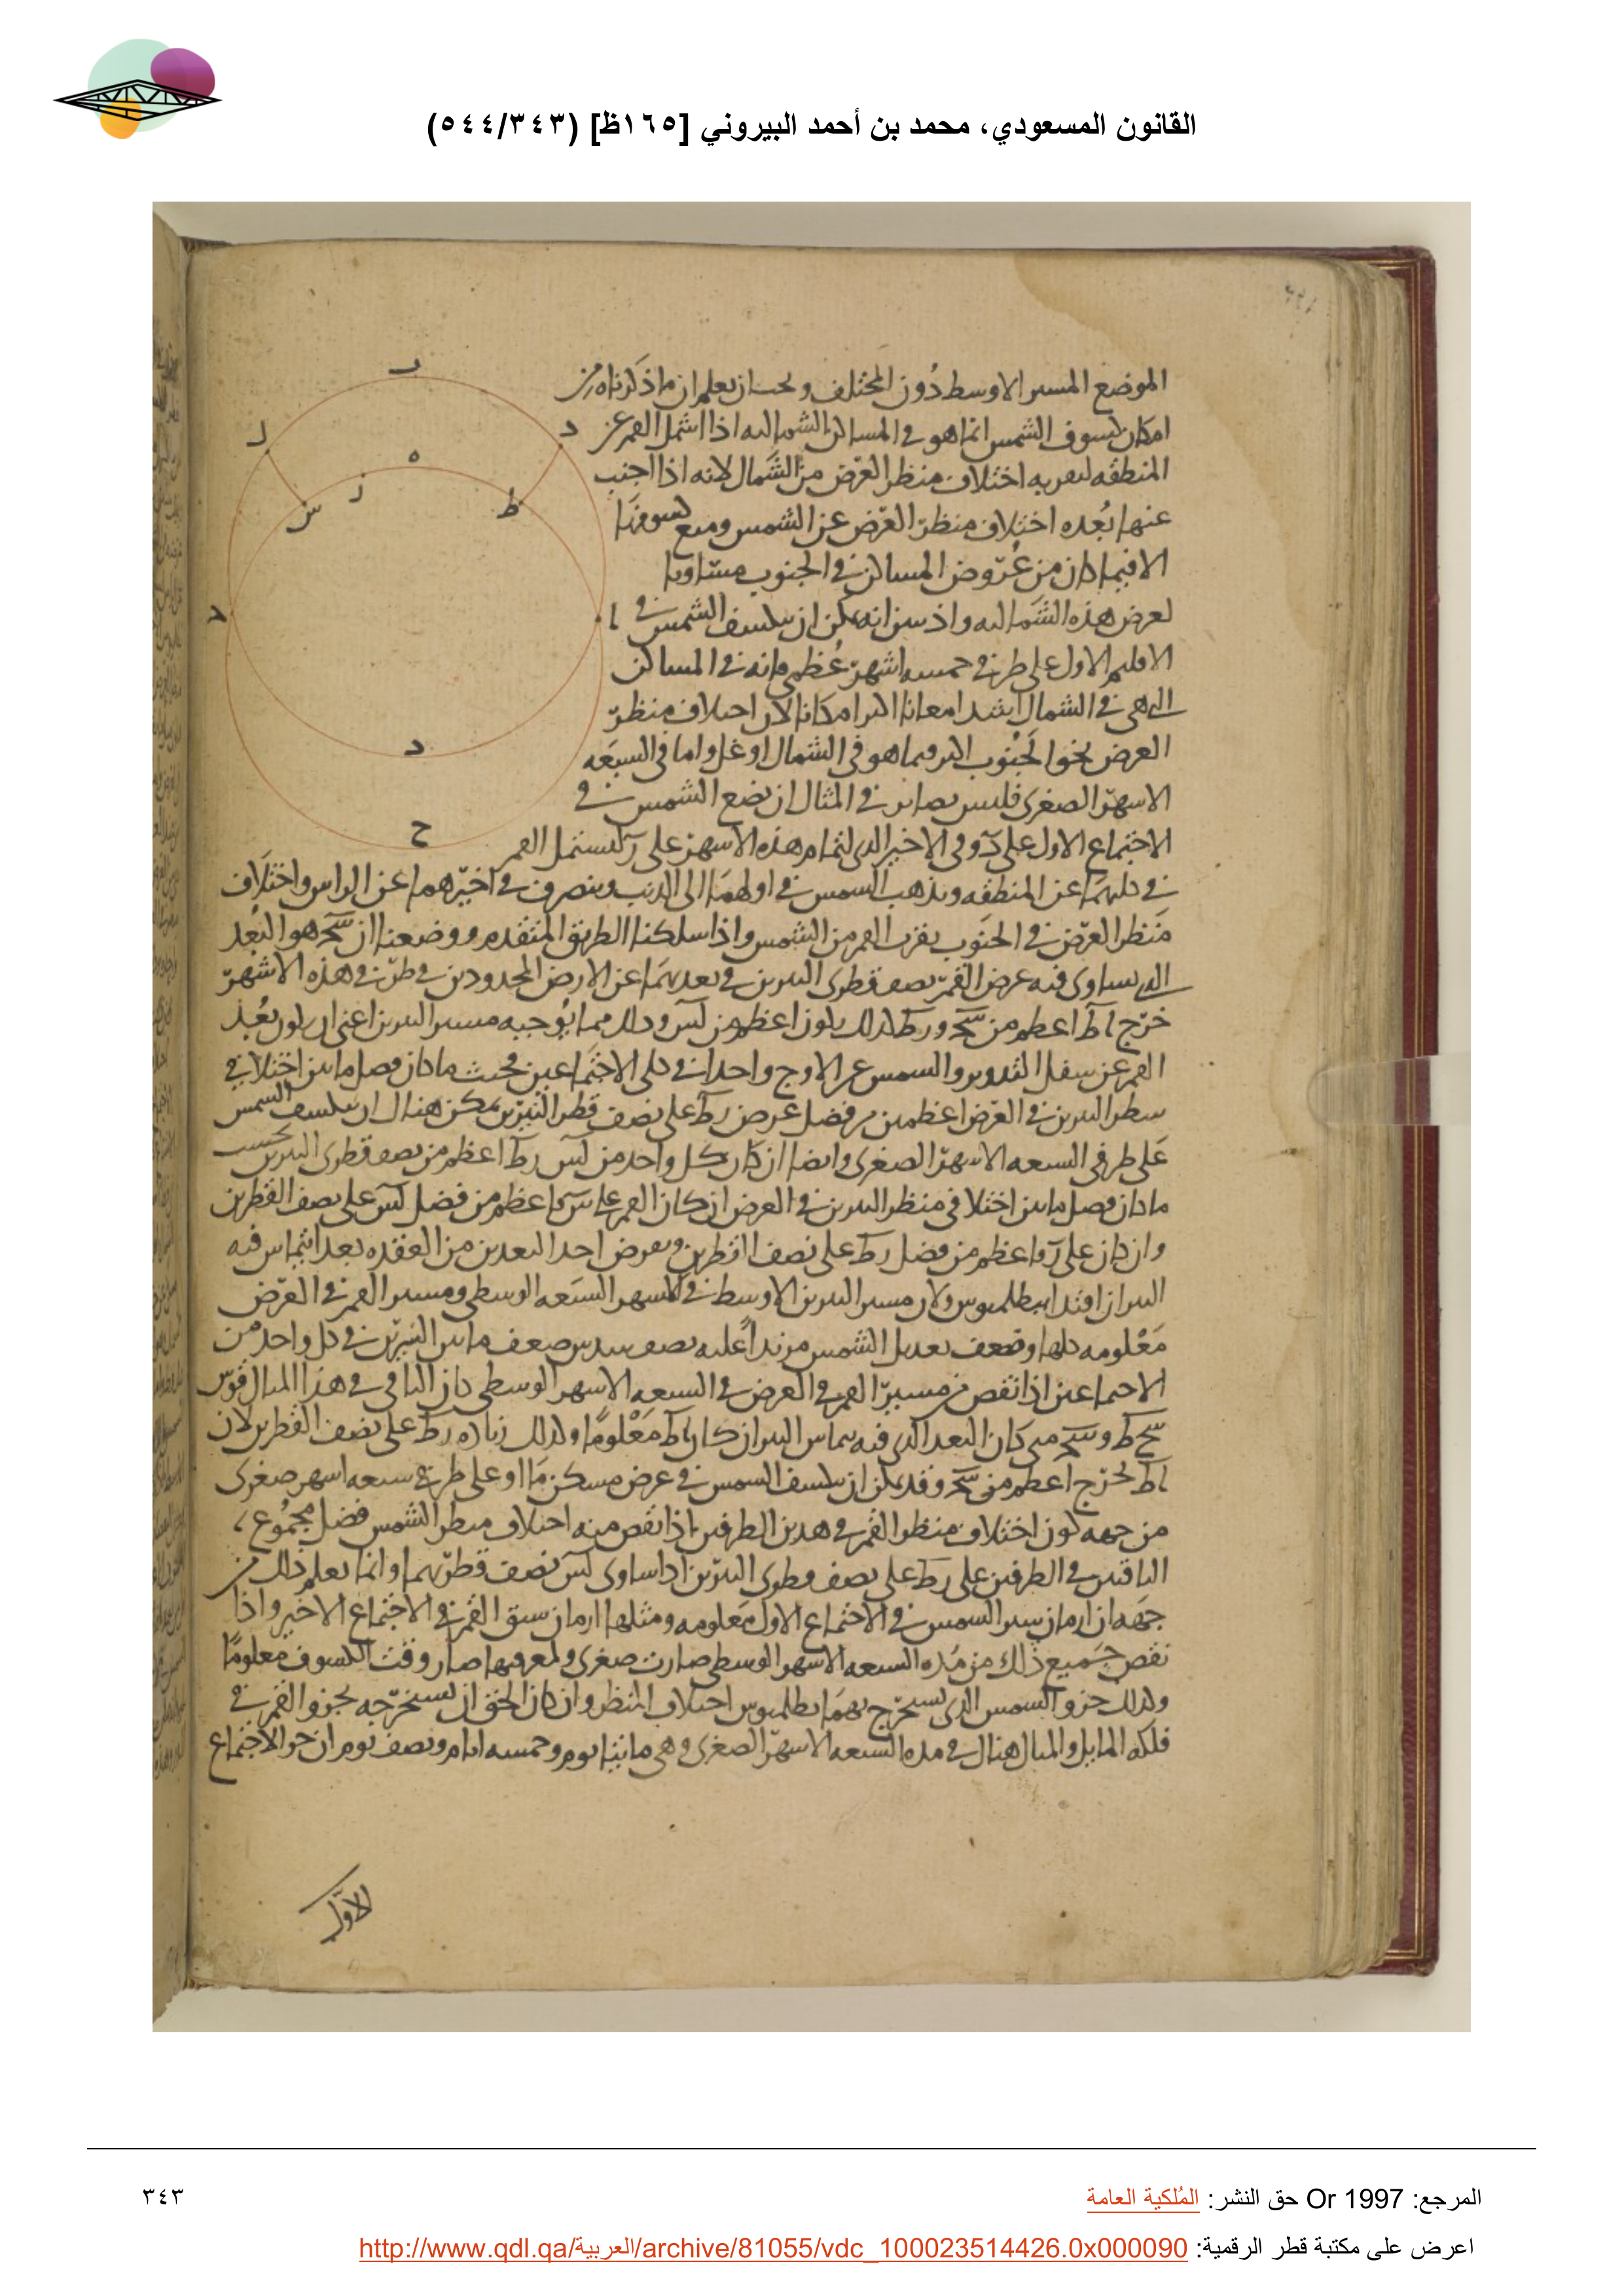 القانون المسعودي، محمد بن أحمد البيروني [١٦٥ظ] (٥٤٤/٣٤٣)
الموضع المسير الاوسط دون المختلف ويجب ان يعلم ان ما ذكرناه من
امكان كسوف الشمس انما هو في المساكن الشماليه اذا اشمل القمر عن
المنطقه لتقربه اختلاف منظر العرض من الشمال لانه اذا اجنب
عنها بعده اختلاف منظر العرض عن الشمس ومنع كسوفها
الا فيما كان من عروض المساكن في الجنوب مساويا
لعرض هذه الشماليه واذ تبين انه يمكن ان ينكسف الشمس في
الاقليم الاول على طرفي خمسه اشهر عظمى فانه في المساكن
التي هي في الشمال اشد امعانا اكثر امكانا لان اختلاف منظر
العرض نحو الجنوب اكثر فيما هو في الشمال اوغل واما في السبعه
الاشهر الصغرى فليس بضائر في المثال ان نضع الشمس في
الاجتماع الاول على د وفي الاخير الذي لتمام هذه الاشهر على ل ليشتمل القمر
في كليهما عن المنطقه ويذهب الشمس في اولهما الى الذنب وينصرف في اخيرهما عن الراس واختلاف
منظر العرض في الجنوب يقرب القمر من الشمس واذا سلكنا الطريق المتقدم ووضعنا ان سح هو البعد
الذي يساوي فيه عرض القمر نصف قطري النيرين في بعديهما عن الارض المحدودين في طرفي هذه الاشهر
خرج اط اعظم من سح ودط كذلك يكون اعظم من لس وذلك مما يوجبه مسير النيرين اعني ان يكون بعد
القمر عن سفل التدوير والشمس عن الاوج واحدا في كلى الاجتماعين فحيث ما كان فضل ما بين اختلافي
منظر النيرين في العرض اعظم من فضل عرض دط على نصف قطر النيرين يمكن هناك ان ينكسف الشمس
على طرفي السبعه الاشهر الصغرى وايضا ان كان كل واحد من لس دط اعظم من نصف قطري النيرين بحسب
ما كان فضل ما بين اختلافي منظر النيرين في العرض ان كان القمر على س ما اعظم من فضل لس على نصف القطرين
وان كان على د ما اعظم من فضل دط على نصف القطرين ويفرض احد البعدين من العقده بعد ايتماس فيه
النيران اقتدا ببطلميوس ولان مسير النيرين الاوسط في الاشهر السبعه الوسطى ومسير القمر في العرض
معلومه كلها وضعف تعديل الشمس مزيدا عليه نصف سدس ضعف ما بين النيرين في كل واحد من
الاجتماعين اذا نقص من مسير القمر في العرض في السبعه الاشهر الوسطى كان الباقي في هذا المثال قوس
سح ط وسح متى كان البعد الذي فيه يتماس النيران كان اط معلوما وكذلك زياده دط على نصف القطرين لان
اط يخرج اعظم من سح وقد يمكن ان ينكسف الشمس في عرض مسكن ما او على طرفي سبعه اشهر صغرى
من جهه كون اختلاف منظر القمر في هذين الطرفين اذا نقص منه اختلاف منظر الشمس فضل مجموع
الباقيين في الطرفين على دط على نصف قطري النيرين اذا ساوى لس نصف قطريهما وانما يعلم ذلك من
جهه ان ازمان سير الشمس في الاجتماع الاول معلومه ومثلها ازمان سبق القمر في الاجتماع الاخير واذا
نقص جميع ذلك من مده السبعه الاشهر الوسطى صارت صغرى ولمعرفتها صار وقت الكسوف معلوما
وكذلك جزو الشمس الذي يستخرج بهما بطلميوس اختلاف المنظر وان كان الحق ان يستخرجه بجزو القمر في
فلكه المايل والمثال هناك في مده السبعه الاشهر الصغرى وهي مايتا يوم وخمسه ايام ونصف يوم ان جزو الاجتماع
الاول
ب
ل
د
ه
ر
س
ط
ا
ح
المرجع: Or 1997 حق النشر: المُلكية العامة
٣٤٣
اعرض على مكتبة قطر الرقمية: http://www.qdl.qa/العربية/archive/81055/vdc_100023514426.0x000090